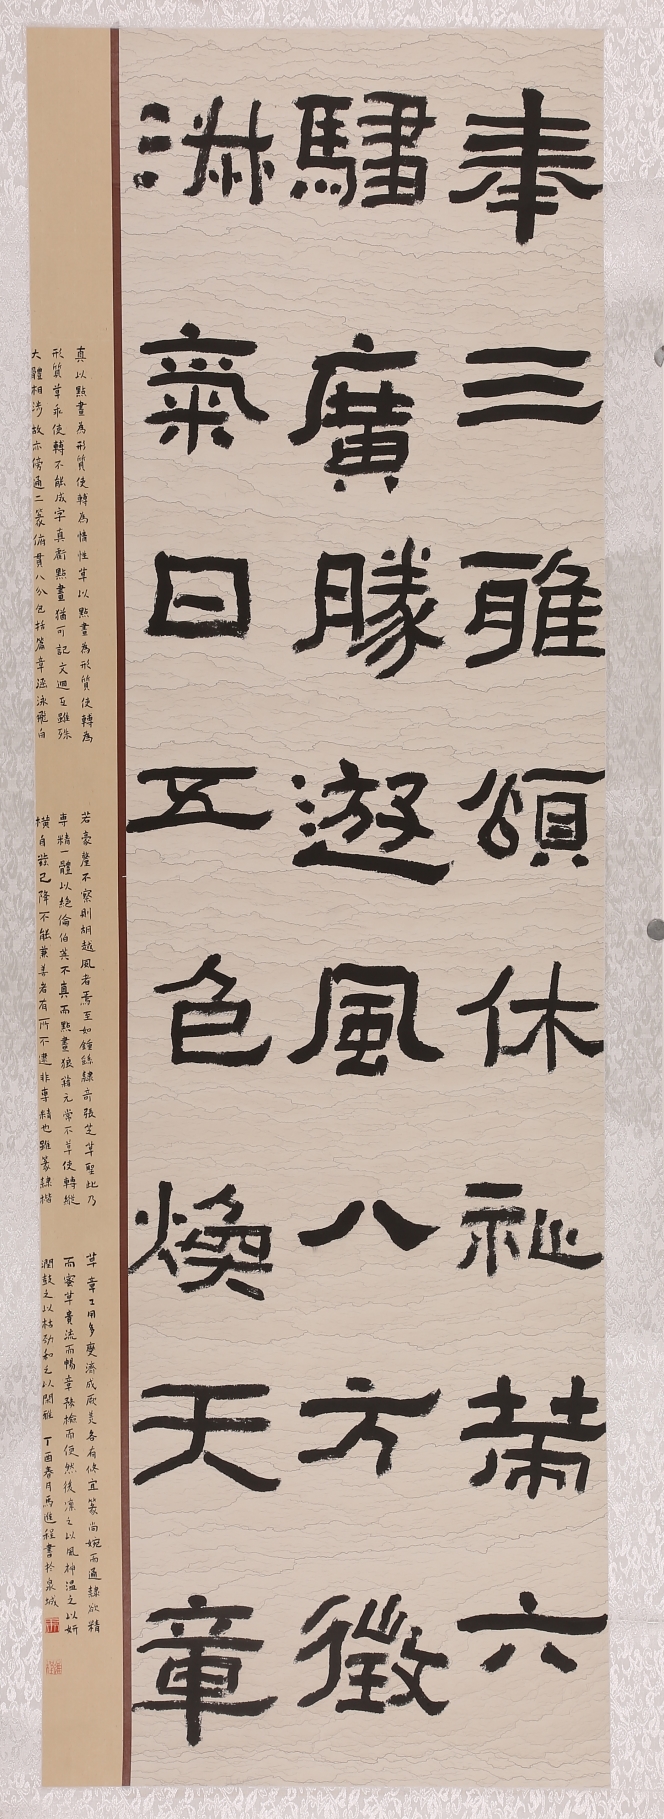 奉三雅頌休祉荣六
驌廣勝遊風八方徵
淑氣日五色煥天章
真以點畫為形質使轉為情性草以點畫為形質使轉為
形質草乖使轉不能成字真虧點畫猶可記文迴互雖殊
大體相涉故亦傍通二篆俯貫八分包括篇章涵泳飛白
若豪釐不察則胡越風者焉至如鍾繇隸奇張芝草聖此乃
專精一體以絕倫伯英不真而點畫狼藉元常不草使轉縱
橫自茲已降不能兼善者有所不逮非專精也雖篆隸楷
草章工用多變濟成厥美各有攸宜篆尚婉而通隸欲精
而密草貴流而暢章務檢而便然後凜之以風神溫之以妍
潤鼓之以枯勁和之以閑雅 丁酉春月馬進程書於泉城